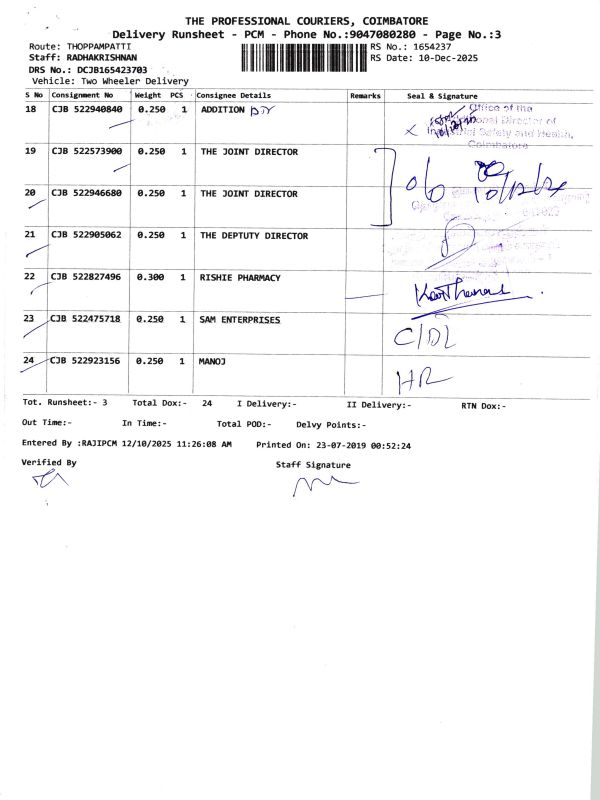 THE PROFESSIONAL COURIERS, COIMBATORE
Delivery Runsheet - PCM - Phone No.:9047080280 - Page No.:3
Route: THOPPAMPATTI RS No.: 1654237
Staff: RADHAKRISHNAN RS Date: 10-Dec-2025
DRS No.: DCJB165423703
Vehicle: Two Wheeler Delivery
S No Consignment No Weight PCS Consignee Details Remarks Seal & Signature
18 CJB 522940840 0.250 1 ADDITION
Office of the
Director of
Safety and Health,
Coimbatore
19 CJB 522573900 0.250 1 THE JOINT DIRECTOR
20 CJB 522946680 0.250 1 THE JOINT DIRECTOR
21 CJB 522905062 0.250 1 THE DEPTUTY DIRECTOR
22 CJB 522827496 0.300 1 RISHIE PHARMACY
23 CJB 522475718 0.250 1 SAM ENTERPRISES
24 CJB 522923156 0.250 1 MANOJ HR
Tot. Runsheet:- 3 Total Dox:- 24 I Delivery:- II Delivery:- RTN Dox:-
Out Time:- In Time:- Total POD:- Delvy Points:-
Entered By :RAJIPCM 12/10/2025 11:26:08 AM Printed On: 23-07-2019 00:52:24
Verified By Staff Signature